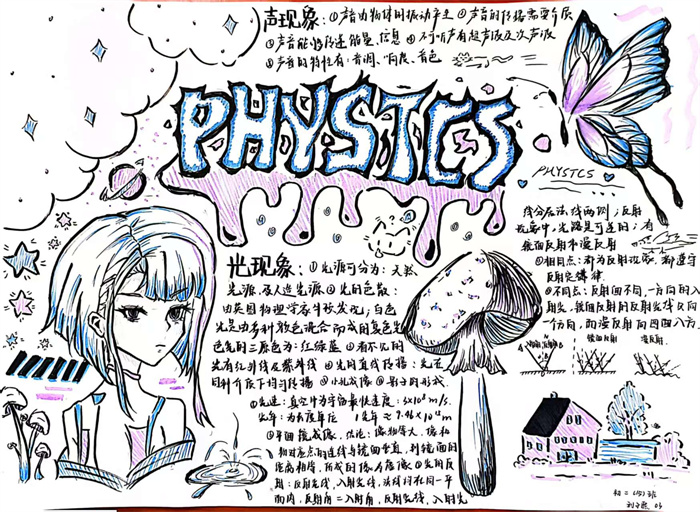 声现象：①声由物体的振动产生 ②声音的传播需要介质
③声音能够传递能量、信息 ④不可听声有超声波及次声波
⑤声音的特性有：音调、响度、音色
PHYSTCS
PHYSTCS
光现象：①光源可分为：天然
光源及人造光源 ②光的色散：
由英国物理学家牛顿发现；白色
光是由多种颜色混合而成的复色光
色光的三原色为：红绿蓝 ③看不见的
光有红外线及紫外线 ④光的直线传播：光在
同种介质下均匀传播 ⑤小孔成像 ⑥影子的形成
⑦光速：真空中为宇宙最快速度：3×10⁸ m/s.
光年：为长度单位 1光年≈9.46×10¹⁵m
⑧平面镜成像，结论：像物等大，像和
相对应点的连线与镜面垂直，到镜面的
距离相等，所成的像为虚像 ⑨光的反
射：反射光线，入射光线，法线均在同一平
面内，反射角=入射角，反射光线，入射光
线分居法线两侧；反射
现象中，光路是可逆的；有
镜面反射和漫反射
①相同点：都为反射现象，都遵守
反射定律
②不同点：反射面不同，一方向的入
射光，镜面反射的反射光线只向
一个方向，而漫反射向四面八方.
镜面反射
漫反射.